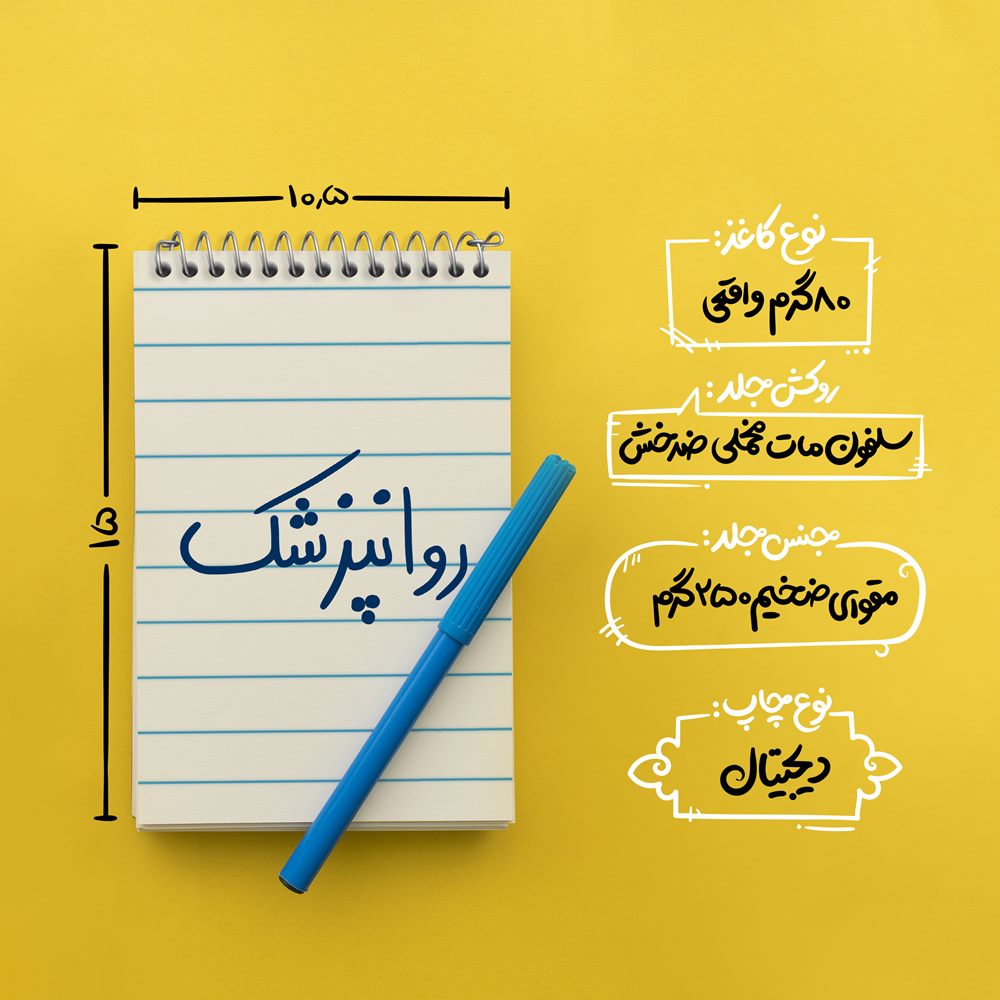 ۱۰٫۵
۱۵
روانپزشک
نوع کاغذ:
۸۰گرم واقعی
روکش جلد:
سلفون مات مخملی ضدخش
جنس جلد:
مقوای ضخیم ۲۵۰گرم
نوع چاپ:
دیجیتال